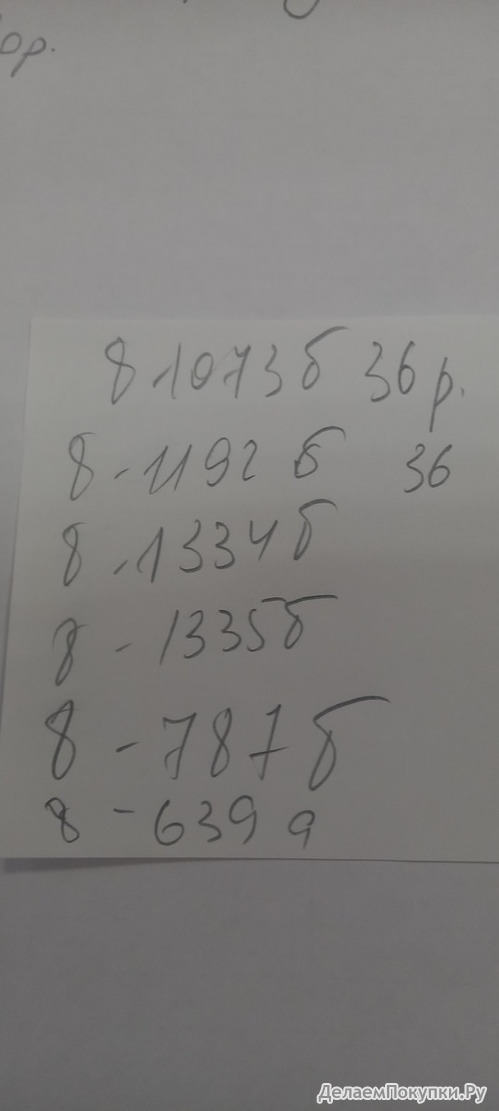 0р.
8-1073б 36 р.
8-1192 б 36
8-1334б
8-1335б
8-787б
8-639 а
ДелаемПокупки.Ру